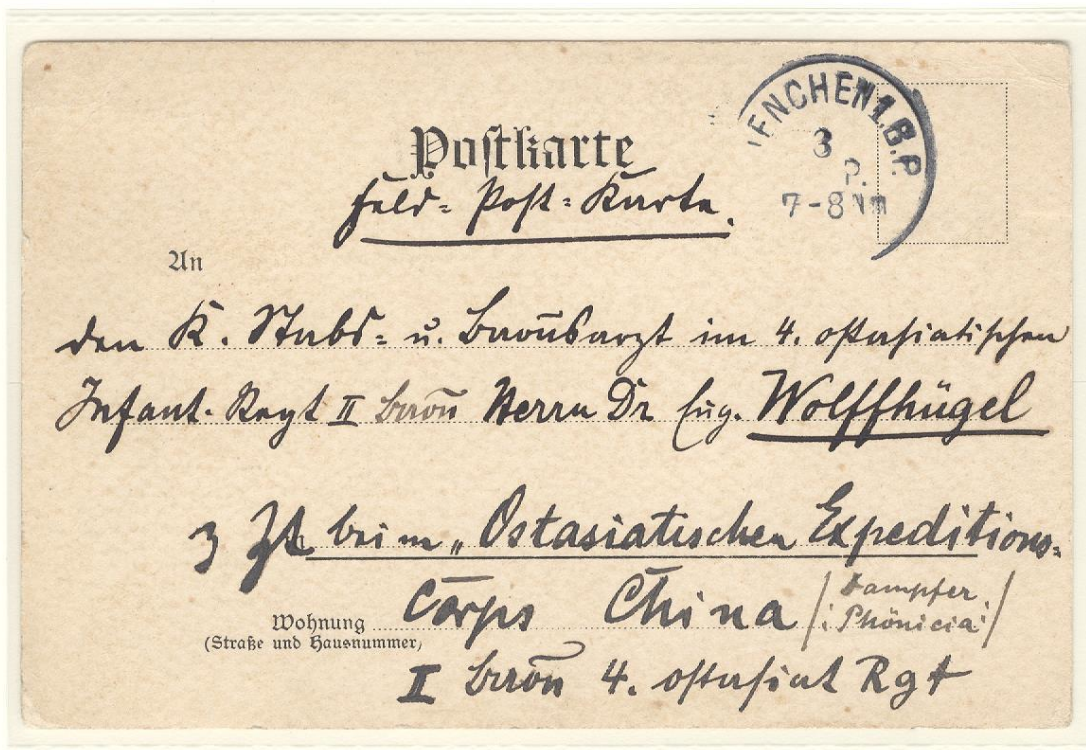 Postkarte
Feld-Post-Karte.
MENCHEN 1. B.P.
3
P.
7-8 NM
An
den K. Stabs- u. Baõnsarzt im 4. ostasiatischen
Infant. Regt II Baõn Herrn Dr Eug. Wolffhügel
z Zt beim „Ostasiatischen Expeditions-
Corps China /: Dampfer
Phönicia :/
Wohnung
(Straße und Hausnummer)
I Baõn 4. ostasiat Rgt